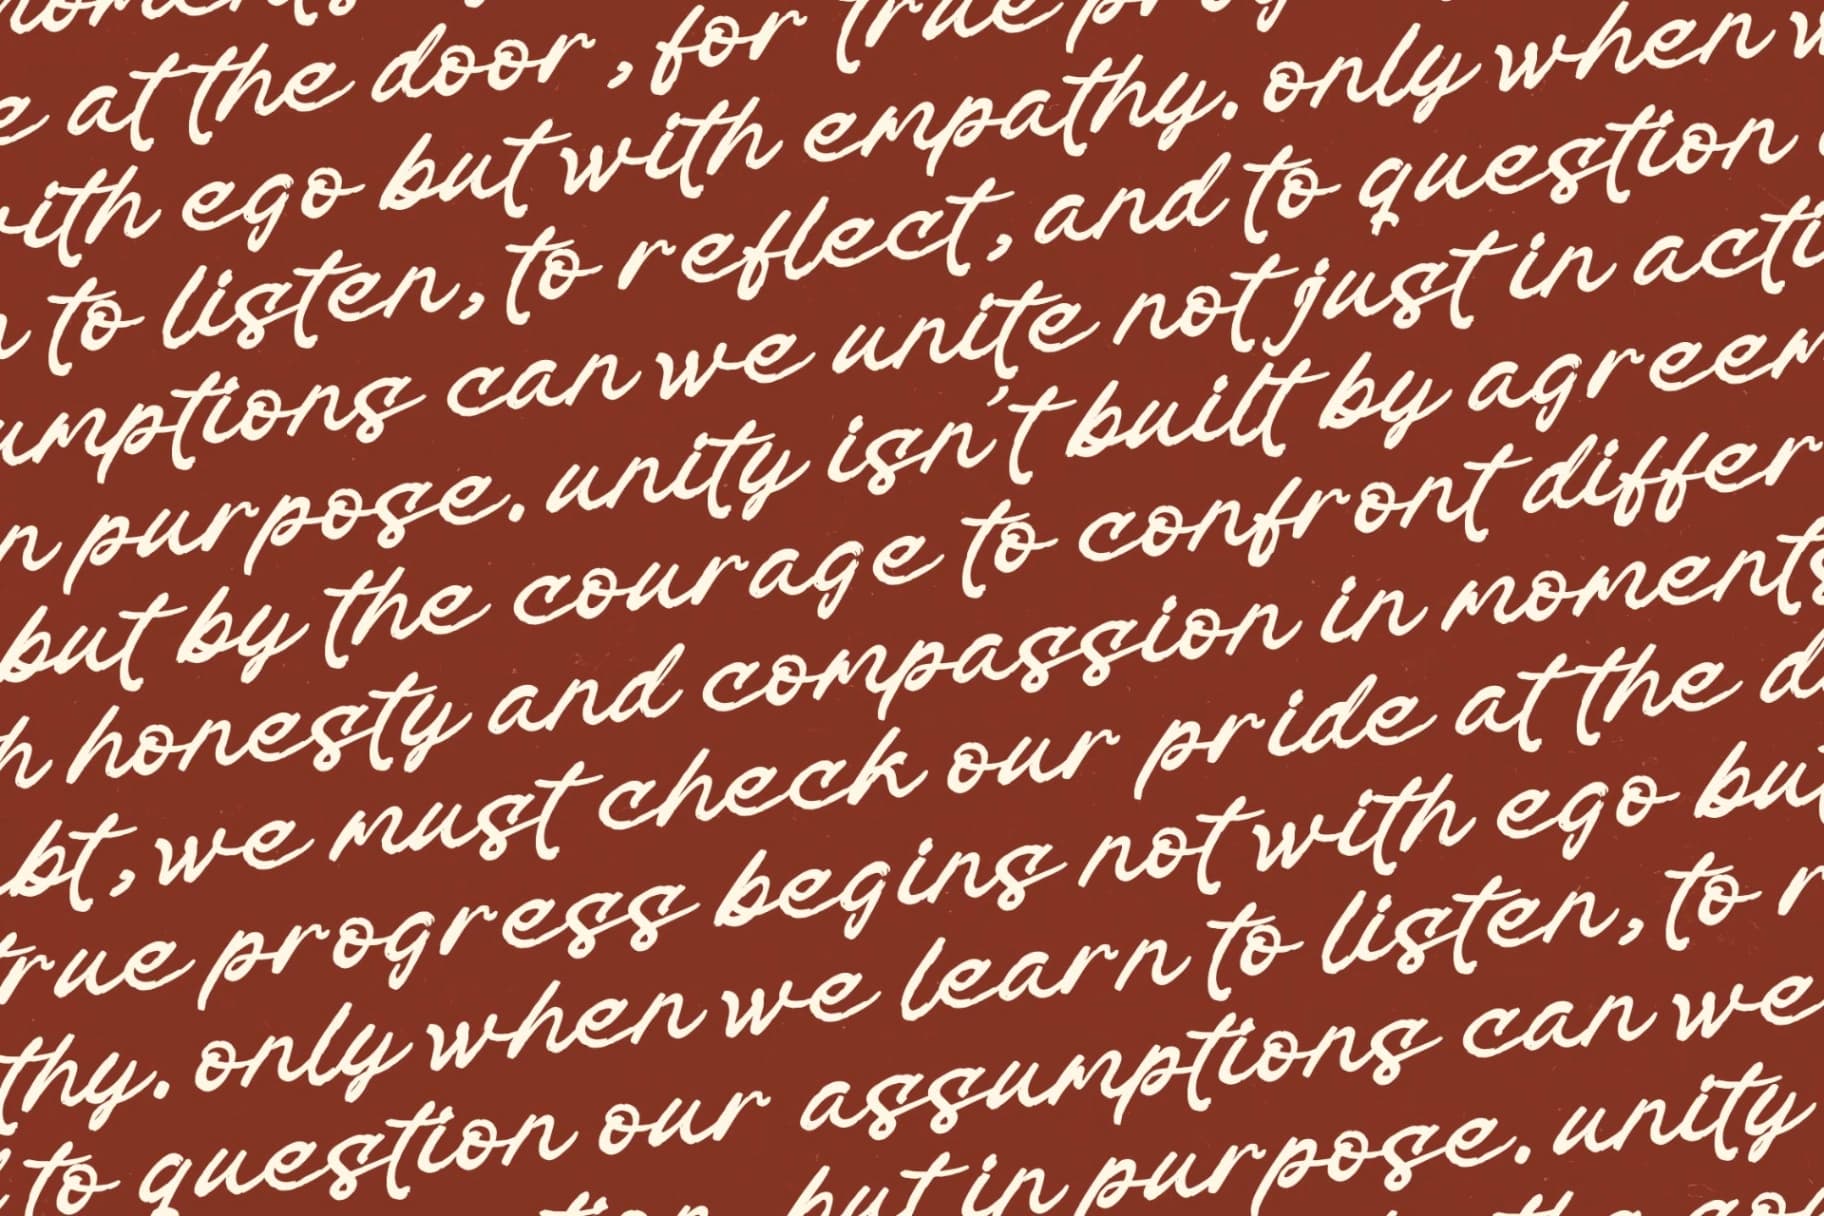 moments
e at the door, for true prog
with ego but with empathy. only when w
n to listen, to reflect, and to question
umptions can we unite not just in acti
n purpose. unity isn't built by agreem
but by the courage to confront differ
h honesty and compassion in moments
bt, we must check our pride at the d
true progress begins not with ego but
thy. only when we learn to listen, to r
to question our assumptions can we
tion, but in purpose. unity